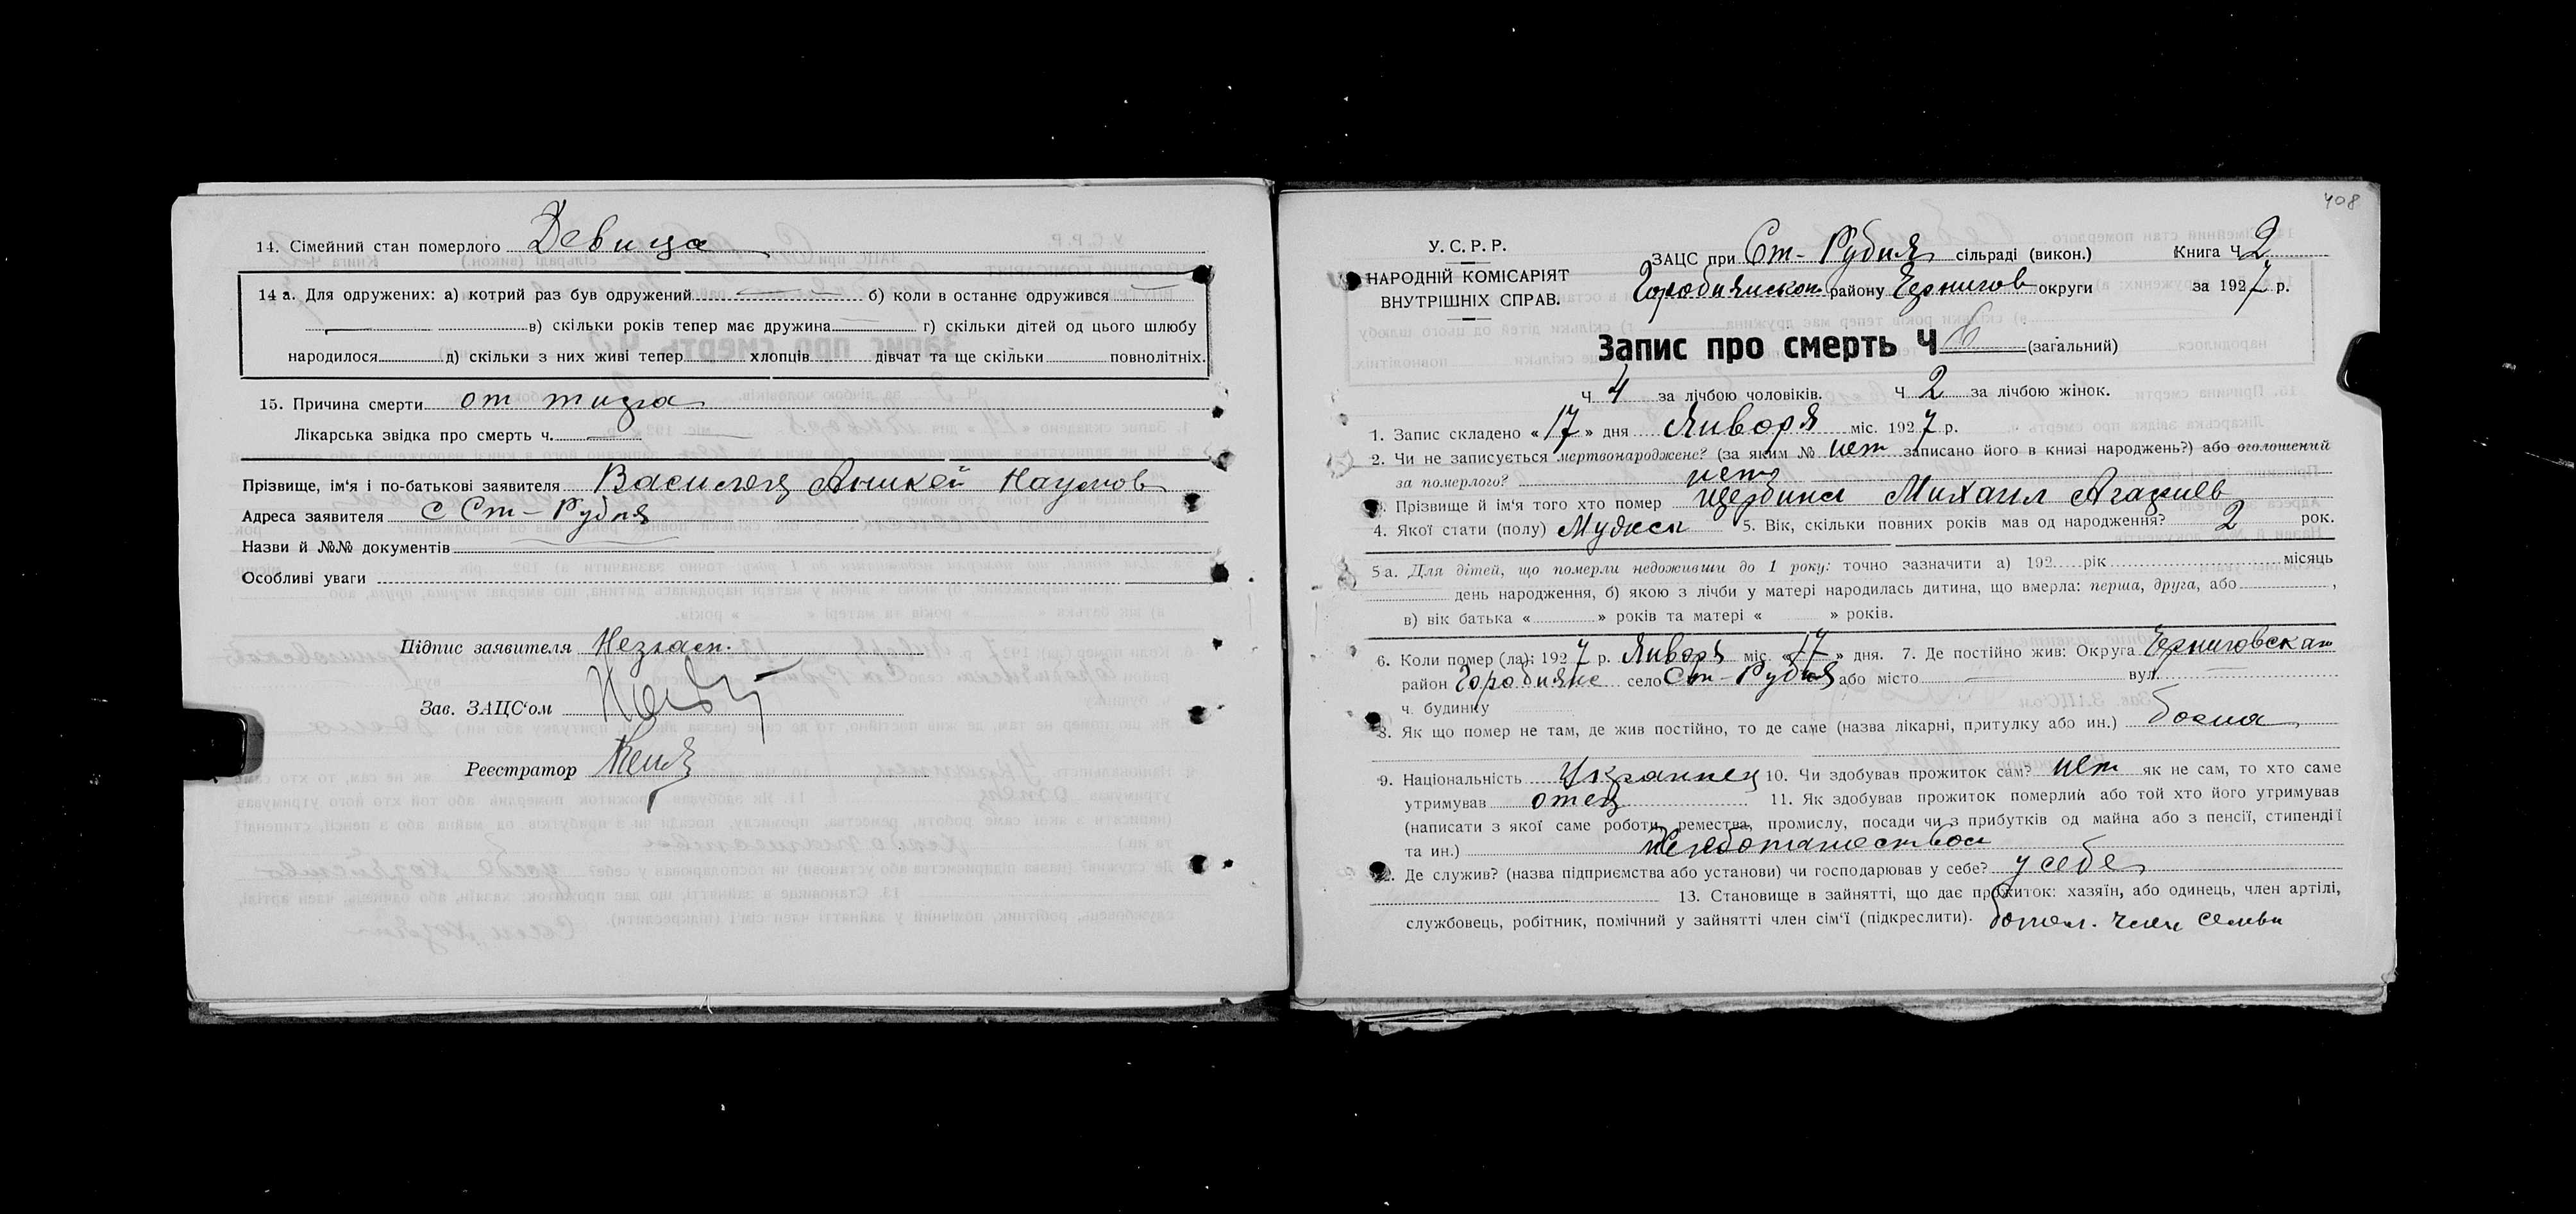 14. Сімейний стан померлого Девица
14 а. Для одружених: а) котрий раз був одружений б) коли в останнє одружився
в) скільки років тепер має дружина г) скільки дітей од цього шлюбу
народилося д) скільки з них живі тепер хлопців дівчат та ще скільки повнолітніх.
15. Причина смерти от тифа
Лікарська звідка про смерть ч.
Прізвище, ім'я і по-батькові заявителя Василец Наумов
Адреса заявителя с Ст-Рубня
Назви й №№ документів
Особливі уваги
Підпис заявителя Незгот.
Зав. ЗАЦС'ом
Реєстратор
408
У. С. Р. Р.
НАРОДНІЙ КОМІСАРІЯТ
ВНУТРІШНІХ СПРАВ.
ЗАЦС при Ст-Рубня сільраді (викон.) Книга Ч 2
Городнянском району Чернигов округи за 1927 р.
Запис про смерть Ч 6 (загальний)
Ч 4 за лічбою чоловіків. Ч 2 за лічбою жінок.
1. Запис складено «17» дня Января міс. 1927 р.
2. Чи не записується мертвонароджене? (за яким № нет записано його в книзі народжень?) або оголошений
за померлого? нет
3. Прізвище й ім'я того хто помер Щербина Михаил
4. Якої стати (полу) Мужск 5. Вік, скільки повних років мав од народження? 2 рок.
5а. Для дітей, що померли недоживши до 1 року: точно зазначити а) 192 рік місяць
день народження, б) якою з лічби у матері народилась дитина, що вмерла: перша, друга, або ,
в) вік батька « » років та матері « » років.
6. Коли помер (ла): 1927 р. Января міс. «17» дня. 7. Де постійно жив: Округа Черниговская
район Городняне село Ст-Рубня або місто вул.
ч. будинку
8. Як що помер не там, де жив постійно, то де саме (назва лікарні, притулку або ин.) дома
9. Національність Украинец 10. Чи здобував прожиток сам? нет як не сам, то хто саме
утримував отец 11. Як здобував прожиток померлий або той хто його утримував
(написати з якої саме роботи, ремества, промислу, посади чи з прибутків од майна або з пенсії, стипендії
та ин.) Хлебопашеством
12. Де служив? (назва підприємства або установи) чи господарював у себе? у себе
13. Становище в зайнятті, що дає прожиток: хазяїн, або одинець, член артілі,
службовець, робітник, помічний у зайнятті член сім'ї (підкреслити). помог. член семьи